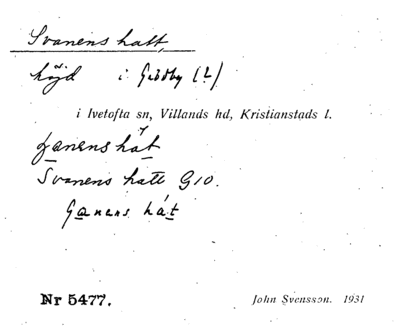 Svanens hatt,
höjd i Gredby (?)
i Ivetofta sn, Villands hd, Kristianstads l.
Svanens hatt G10.
Nr 5477.
John Svensson. 1931